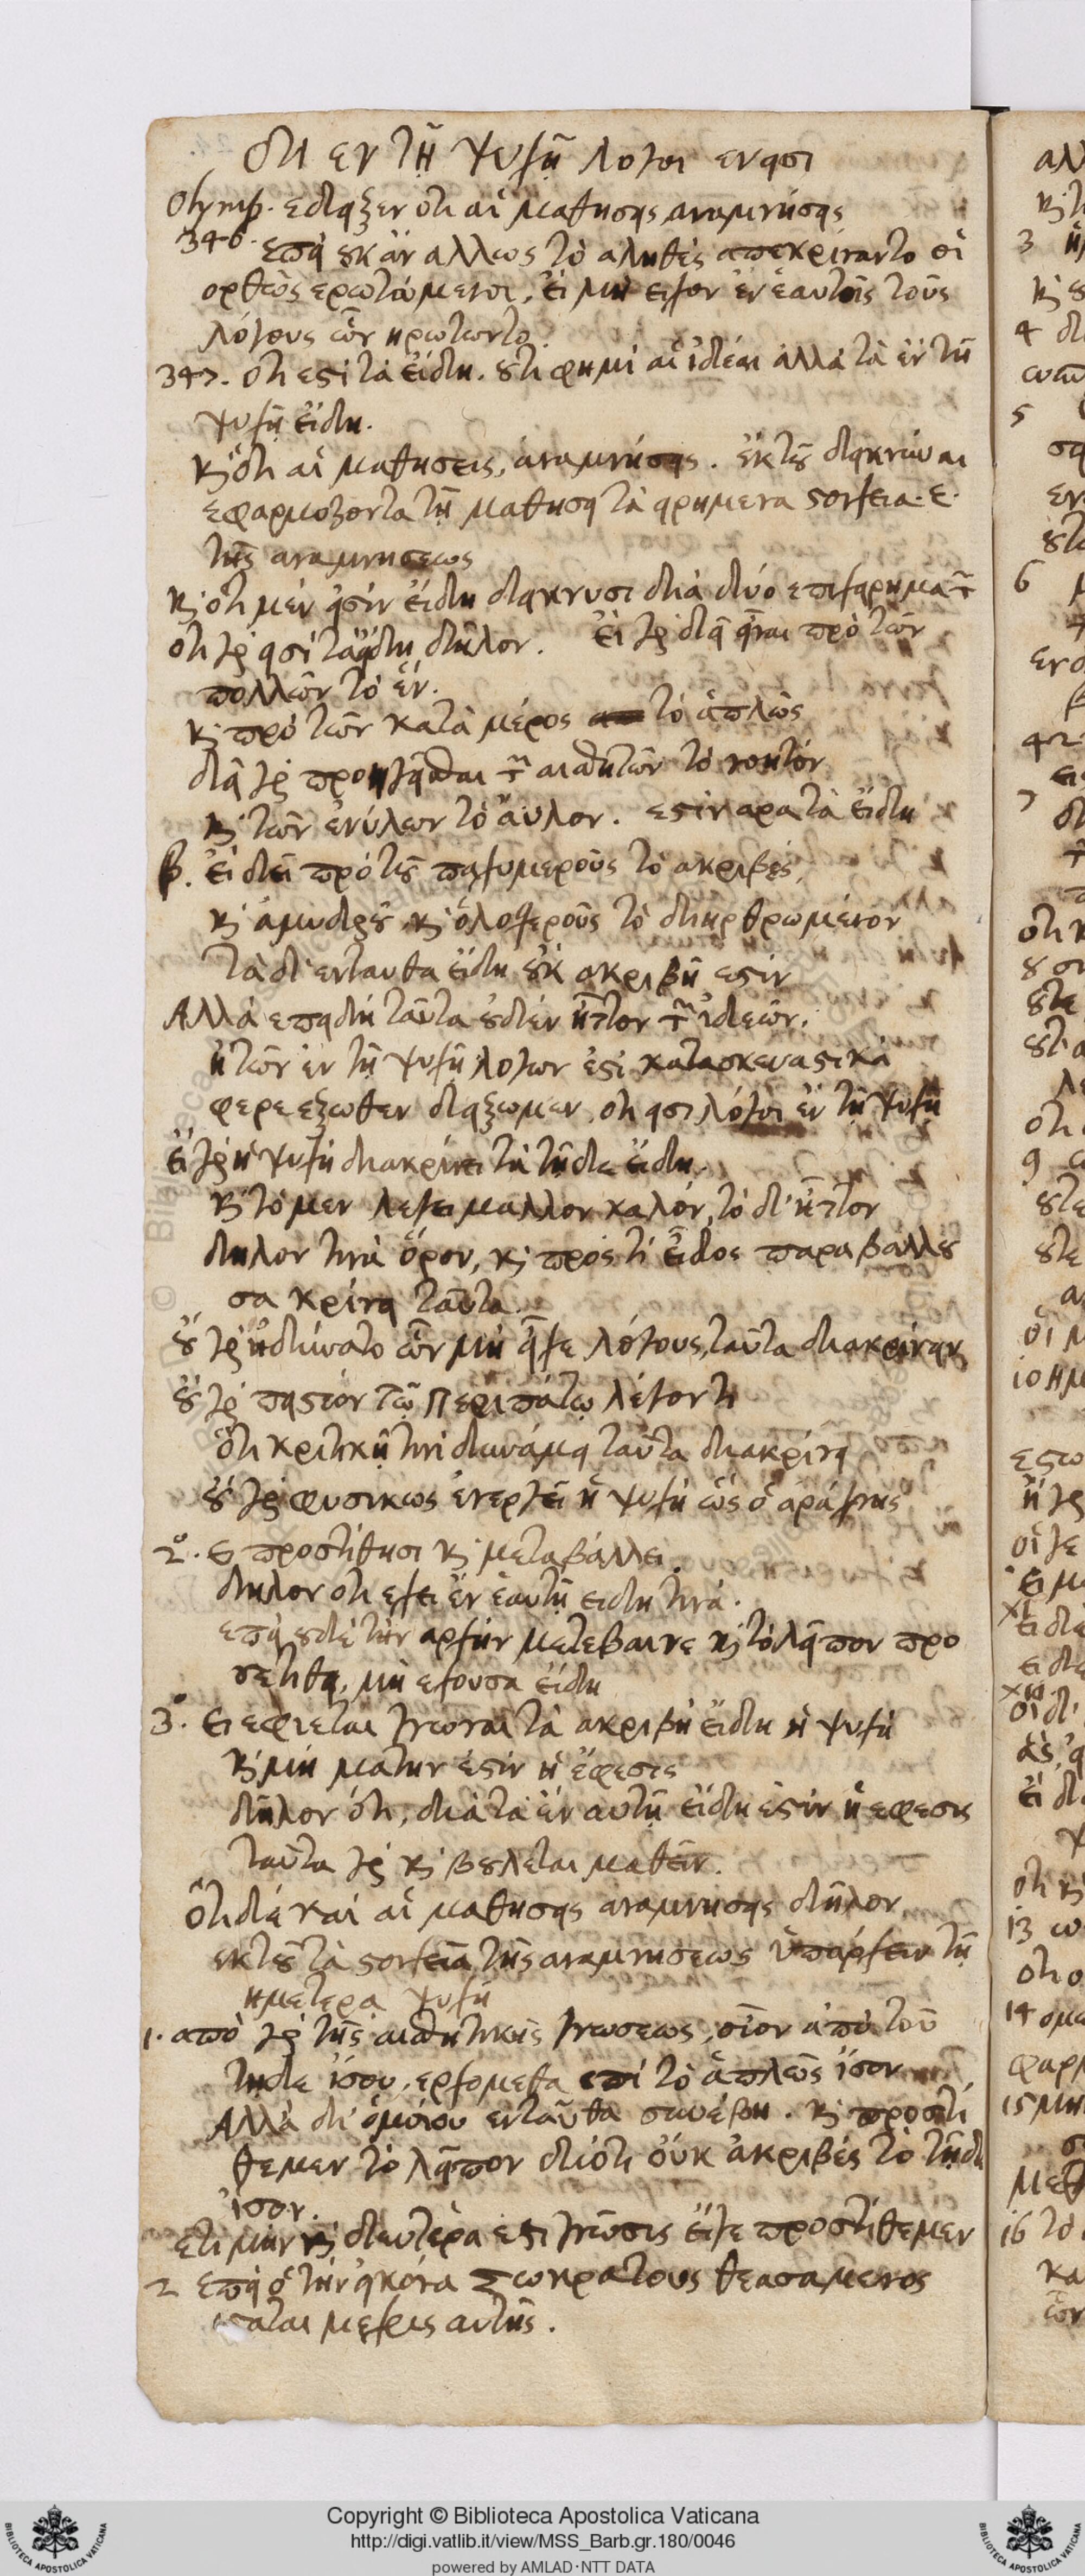 ὅτι εν τῇ ψυχῇ λογοι ενεισι
Olymp. εδειξεν ὁτι αἱ μαθησεις αναμνήσεις
346. επεὶ οὐκ ἀν αλλως τὸ αληθὲς απεκρίναντο οἱ
ορθῶς ερωτώμενοι, εἰ μὴ ειχον ἐν ἑαυτοῖς τοὺς
λόγους ὧν ηρωτωντο.
347. ὁτι εστὶ τὰ εἴδη. οὔτι φημὶ αἱ ἰδέαι ἀλλὰ τὰ ἐν τῇ
ψυχῇ εἴδη.
καὶ ὅτι αἱ μαθησεις, ἀναμνήσεις. ἐκ τοῦ δεικνύναι
εφαρμοζοντα τῇ μαθησει τὰ ειρημενα στοιχεια. ε.
τῆς αναμνησεως
καὶ ὁτι μὲν εἰσὶν εἴδη δεικνυσι διὰ δύο επιχειρηματων
ὁτι γὰρ εισὶ τὰ εἴδη δῆλον. εἰ γὰρ δεῖ εἶναι πρὸ τῶν
πολλῶν τὸ ἕν.
καὶ πρὸ τῶν κατὰ μέρος τὸ ἁπλῶς
δεῖ γὰρ προηγεῖσθαι τῶν αισθητῶν τὸ νοητόν
καὶ τῶν ἐνύλων τὸ ἄυλον. εστὶν αρα τὰ εἴδη
β. εἰ δεῖ πρὸ τοῦ παχυμεροῦς τὸ ακριβές,
καὶ ἀμυδροῦ καὶ ὁλοσχεροῦς τὸ διηρθρωμένον
τὰ δ' ενταυθα εἴδη οὐκ ακριβῆ εστίν
Αλλὰ επειδὴ ταῦτα οὐδὲν ἧττον τῶν ἰδεῶν.
ἢ τῶν ἐν τῇ ψυχῇ λογων ἐστὶ κατασκευαστικά
φερε εξωθεν δειξωμεν, οτι εισι λόγοι ἐν τῇ ψυχῇ
εἰ γὰρ ἡ ψυχὴ διακρίνει τὰ τῇδε εἴδη.
καὶ τὸ μεν λεγει μαλλον καλόν, τὸ δ' ἧττον
δηλον τινὰ ὅρον, καὶ πρός τι εἶδος παραβάλλου
σα κρίνει ταῦτα.
οὐ γὰρ ἠδύνατο ὧν μὴ εἶχε λόγους, ταῦτα διακρίνειν
οὐ γὰρ πειστέον τῷ Περιπάτῳ λέγοντι
ὅτι κριτικῇ τινὶ δυνάμει ταῦτα διακρίνει
οὐ γὰρ φυσικως ἐνεργεῖ ἡ ψυχὴ ὡς ὁ αράχνης
2º. ει προστίθησι καὶ μεταβάλλει.
δηλον οτι εχει ἐν ἑαυτῇ ειδη τινά.
επεὶ οὐδὲ τὴν αρχὴν μετεβαινε καὶ τὸ λεῖπον προ
σετίθει, μὴ εχουσα εἴδη
3º. ει εφιεται γνωναι τὰ ακριβῆ εἴδη ἡ ψυχὴ
καὶ μὴ ματην ἐστὶν ἡ ἔφεσις
δῆλον ὁτι, διὰ τὰ ἐν αυτῇ εἴδη ἐστὶν ἡ εφεσις
ταῦτα γὰρ καὶ βουλεται μαθεῖν.
Ὅτι δὲ καὶ αἱ μαθησεις αναμνησεις δῆλον
εκ τοῦ τὰ στοιχεῖα τῆς αναμνησεως ὑπάρχειν τῇ
ημετερᾳ ψυχῇ
1. απὸ γὰρ τῆς αισθητικῆς γνωσεως, οἷον ἀπὸ τοῦ
τῃδε ἴσου, ερχομεθα επὶ τὸ ἁπλῶς ἴσον
Αλλὰ δι' ὁμοίου ενταῦθα συνέβη. καὶ προστί
θεμεν τὸ λεῖπον διότι οὐκ ἀκριβὲς τὸ τῇδε
ἴσον.
ετι μην καὶ δευτέρα εστι γνῶσις εἴγε προστίθεμεν
2 επεὶ ὁ τὴν εἰκόνα Σωκρατους θεασαμενος
ισταται μεχρις αυτῆς.
Copyright © Biblioteca Apostolica Vaticana
http://digi.vatlib.it/view/MSS_Barb.gr.180/0046
powered by AMLAD·NTT DATA